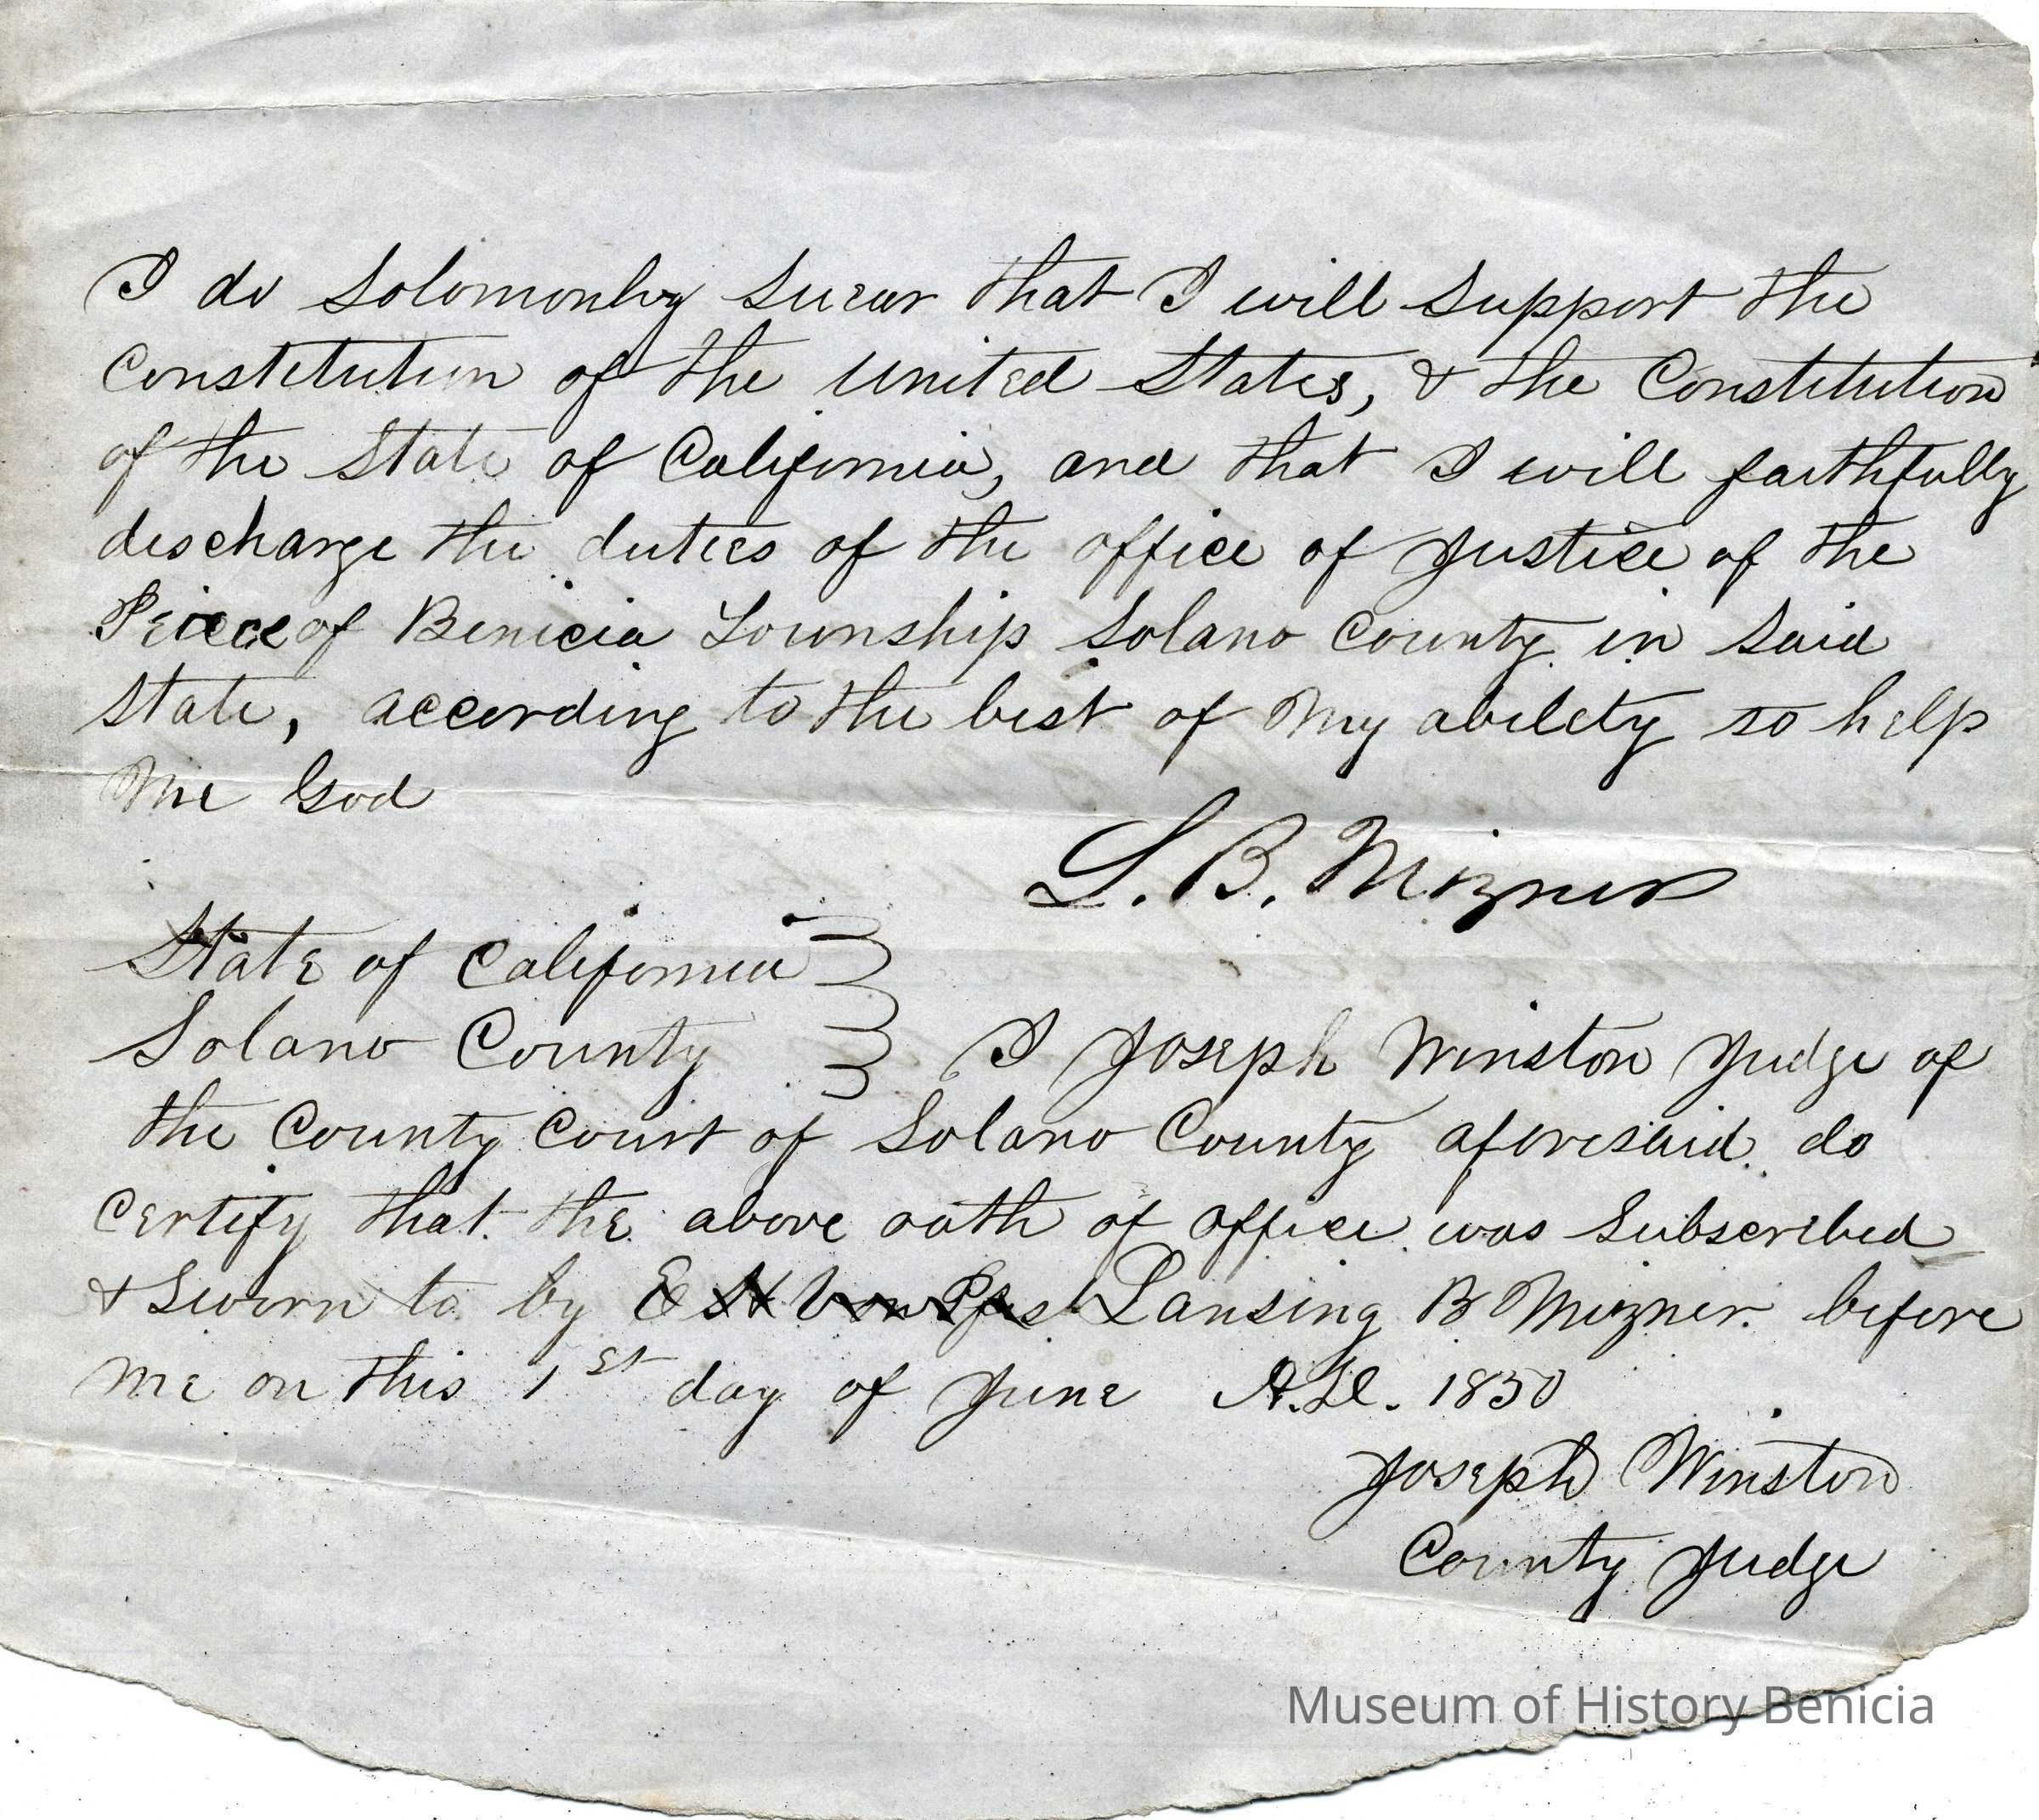 I do Solomonly Swear that I will Support the
Constitution of the United States, & the Constitution
of the State of California, and that I will faithfully
discharge the duties of the office of Justice of the
Peiece of Benicia Township Solano County in Said
State, according to the best of My ability so help
Me God
L. B. Mizner
State of California
Solano County I Joseph Winston Judge of
the County Court of Solano County aforesaid do
Certify that the above oath of office was Subscribed
& Sworn to by Lansing B Mizner before
me on this 1st day of June A.D. 1850
Joseph Winston
County Judge
Museum of History Benicia